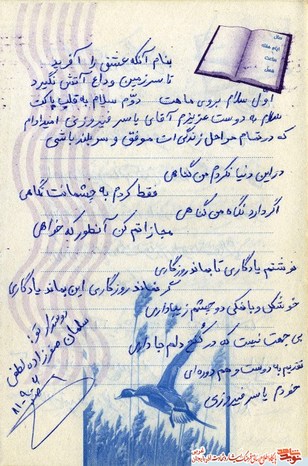 بنام آنکه عشق را آفرید
تا سرزمین وداع آتش نگیرد
اول سلام بروی ماهت دوّم سلام به قلب پاکت
سلام به دوست عزیزم آقای یاسر فیروزی امیدوارم
که در تمام مراحل زندگی ات موفق و سربلند باشی
در این دنیا نکردم من گناهی
فقط کردم به چشمانت نگاهی
اگر دارد نگاه من گناهی
مجازاتم کن آنطور که خواهی
نوشتم یادگاری تا بماند روزگاری
گر نماند روزگاری این بماند یادگاری
خوشگل و با نمکی دو چشم زیبا داری
بی جهت نیست که در کُنج دلم جا داری
تقدیم به دوست و هم دوره ای
خودم یاسر فیروزی
دوستدار تو:
سلمان لطفی